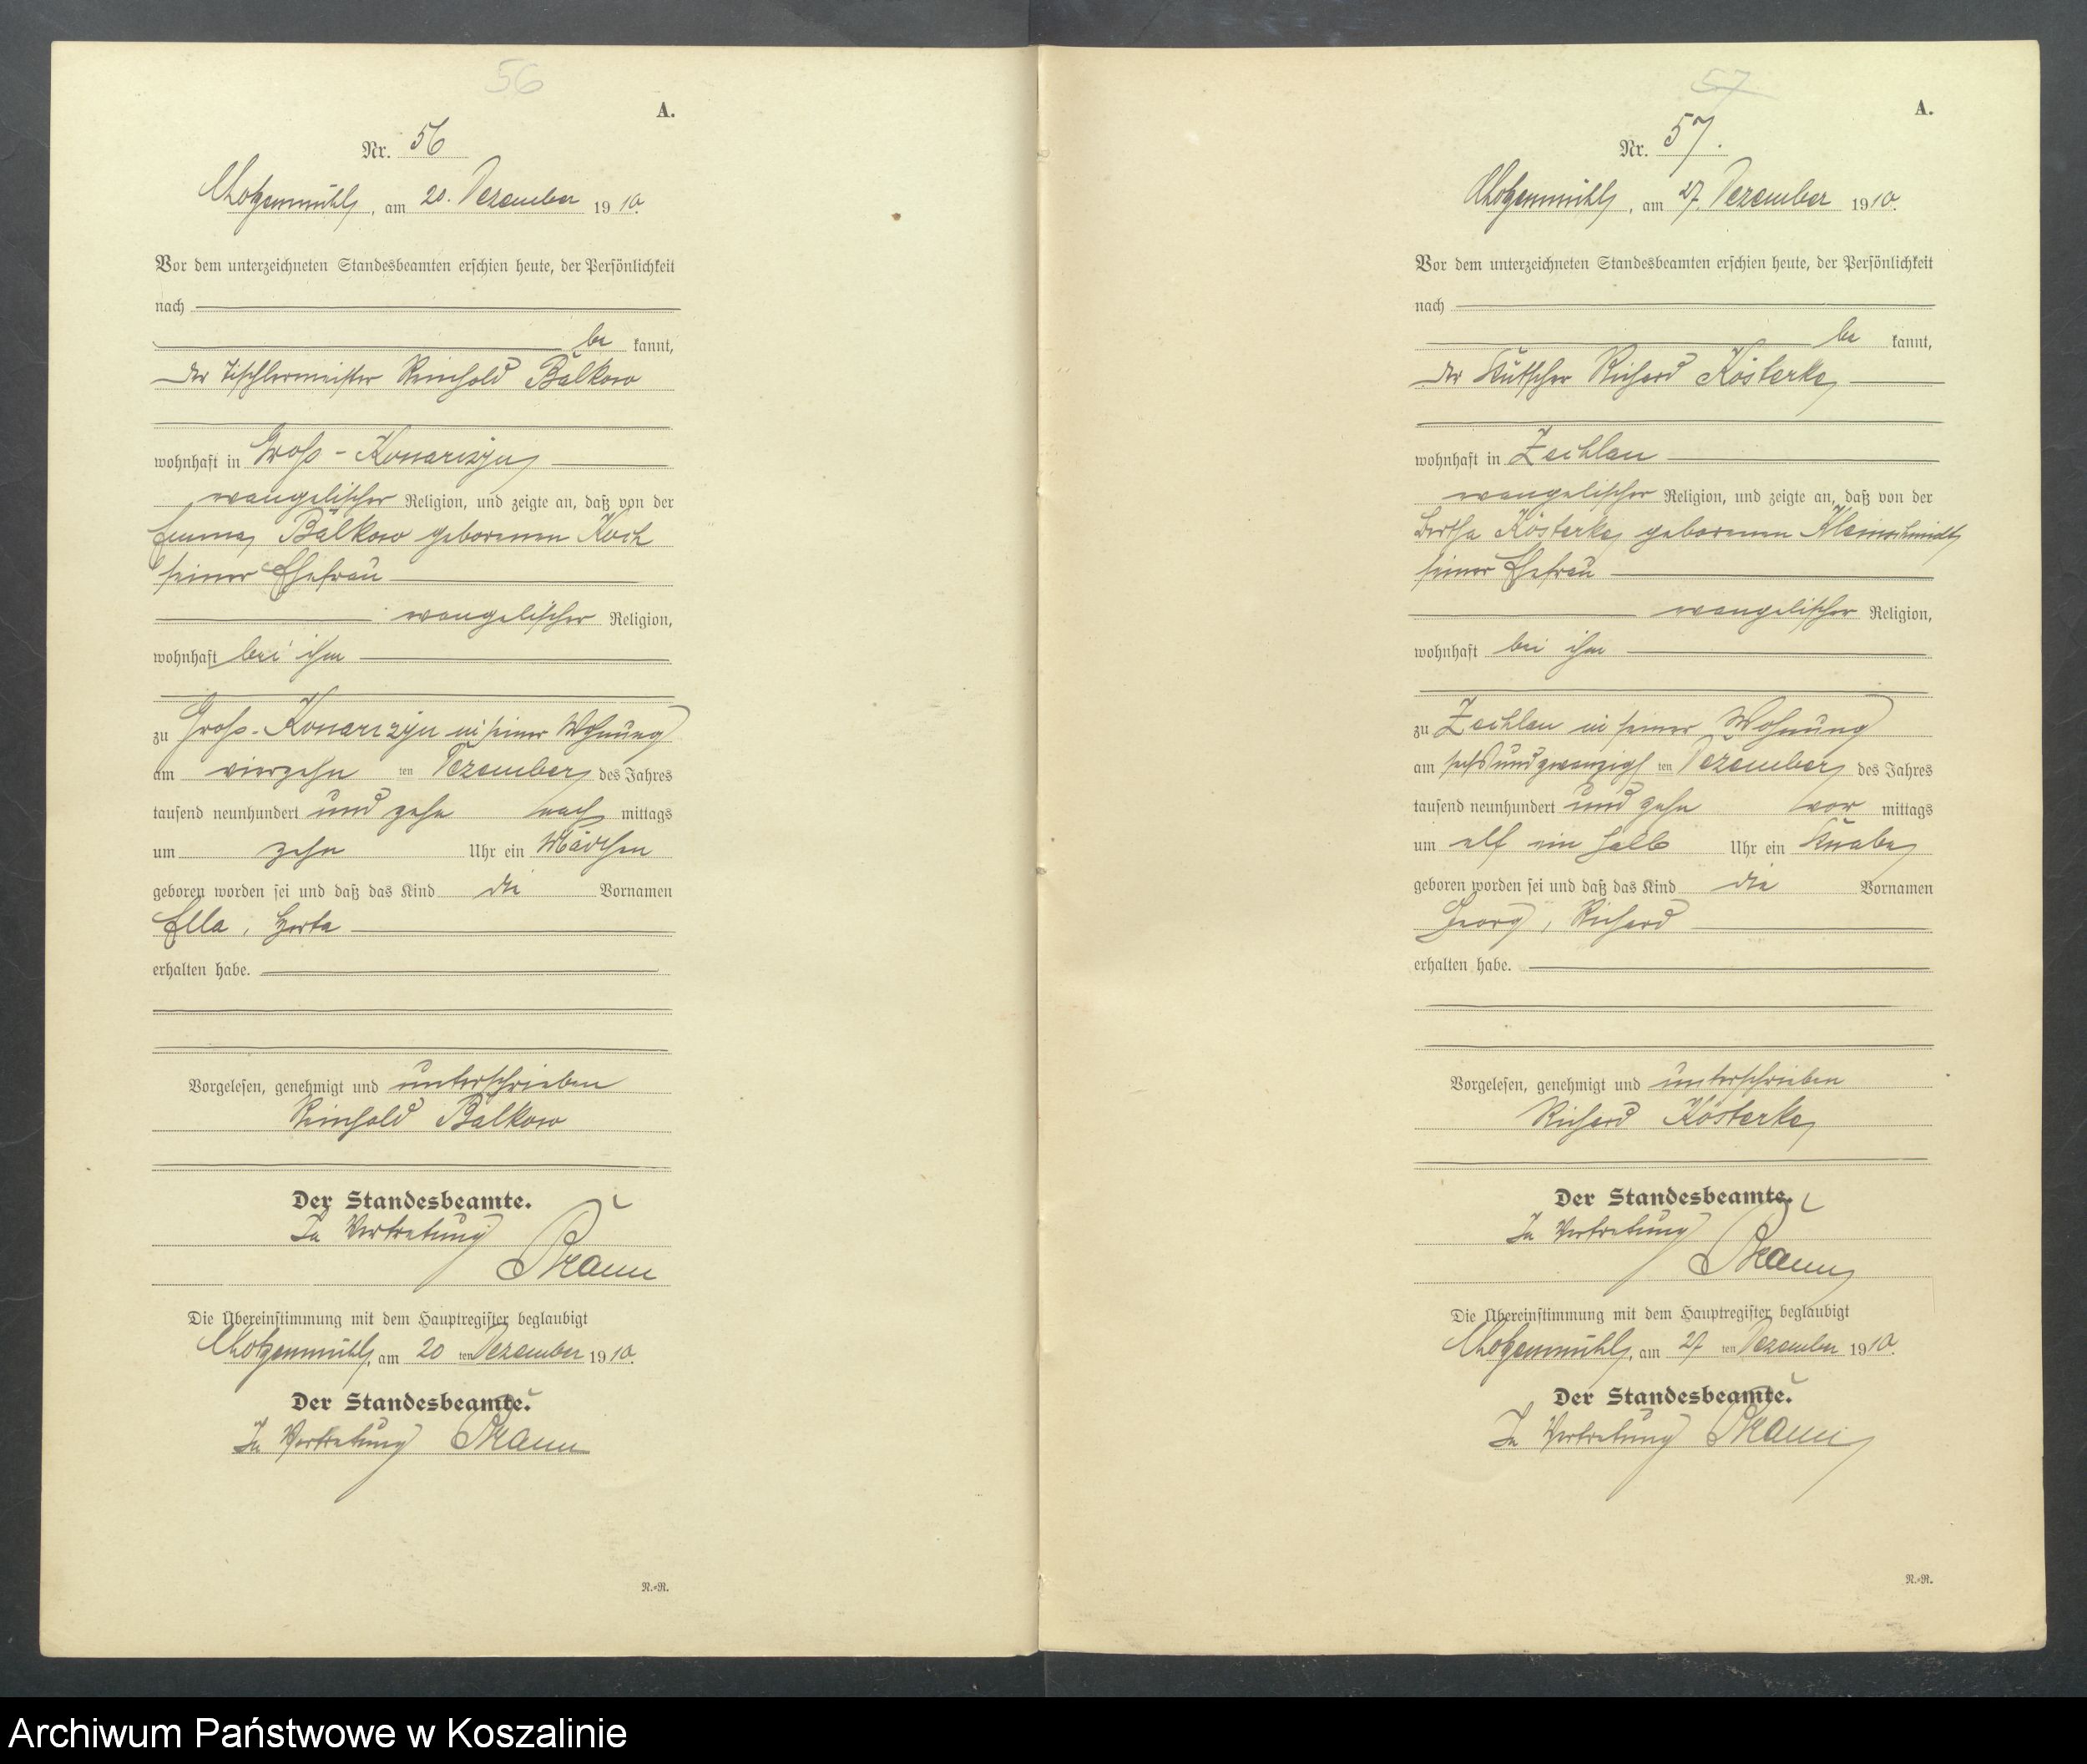 56
A.
Nr. 56
Chotzenmühl, am 20. Dezember 1910.
Vor dem unterzeichneten Standesbeamten erschien heute, der Persönlichkeit
nach
be kannt,
der Tischlermeister Reinhold Balkow
wohnhaft in Groß-Konarczyn
evangelischer Religion, und zeigte an, daß von der
Emma Balkow geborenen Koch
seiner Ehefrau
evangelischer Religion,
wohnhaft bei ihm
zu Groß-Konarczyn in seiner Wohnung
am vierzehn ten Dezember des Jahres
tausend neunhundert und zehn nach mittags
um zehn Uhr ein Mädchen
geboren worden sei und daß das Kind die Vornamen
Ella, Herta
erhalten habe.
Vorgelesen, genehmigt und unterschrieben
Reinhold Balkow
Der Standesbeamte.
In Vertretung
Die Übereinstimmung mit dem Hauptregister beglaubigt
Chotzenmühl, am 20 ten Dezember 1910.
Der Standesbeamte.
In Vertretung
N.-R.
57
A.
Nr. 57.
Chotzenmühl, am 27. Dezember 1910.
Vor dem unterzeichneten Standesbeamten erschien heute, der Persönlichkeit
nach
be kannt,
der Kutscher Richard Kösterke
wohnhaft in Zechlau
evangelischer Religion, und zeigte an, daß von der
Bertha Kösterke geborenen Kleinschmidt
seiner Ehefrau
evangelischer Religion,
wohnhaft bei ihm
zu Zechlau in seiner Wohnung
am sechsundzwanzigsten ten Dezember des Jahres
tausend neunhundert und zehn vor mittags
um elf ein halb Uhr ein Knabe
geboren worden sei und daß das Kind die Vornamen
Georg, Richard
erhalten habe.
Vorgelesen, genehmigt und unterschrieben
Richard Kösterke
Der Standesbeamte.
In Vertretung
Die Übereinstimmung mit dem Hauptregister beglaubigt
Chotzenmühl, am 27. ten Dezember 1910.
Der Standesbeamte.
In Vertretung
N.-R.
Archiwum Państwowe w Koszalinie